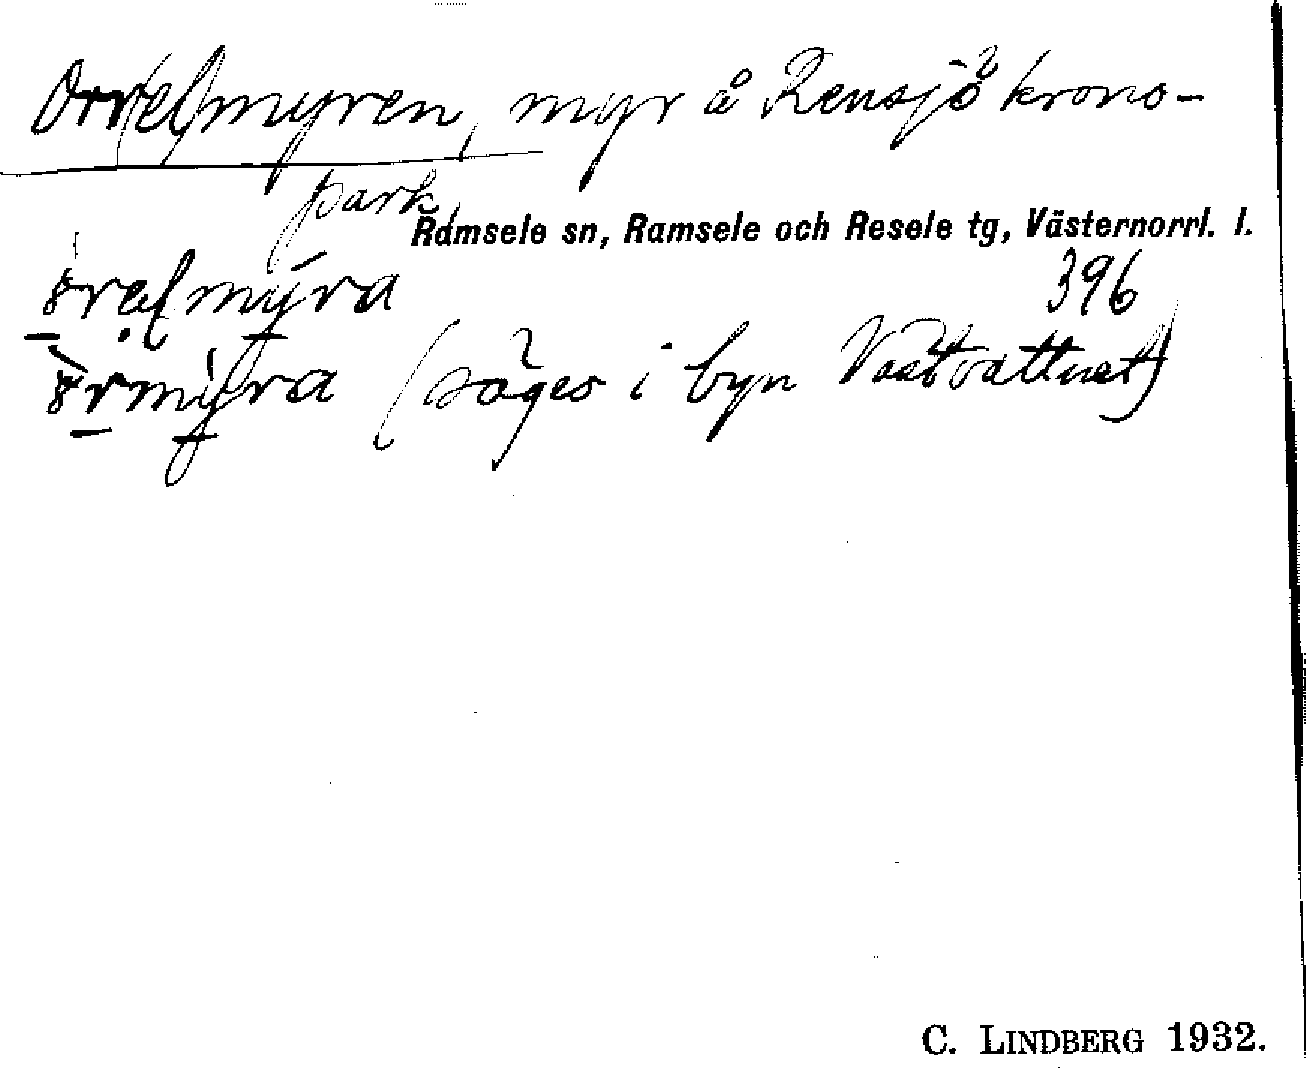 Orr(el)myren, myr å Rensjö krono-
park,
Ramsele sn, Ramsele och Resele tg, Västernorrl. l.
396
(säges i byn Västvattnet)
C. LINDBERG 1932.